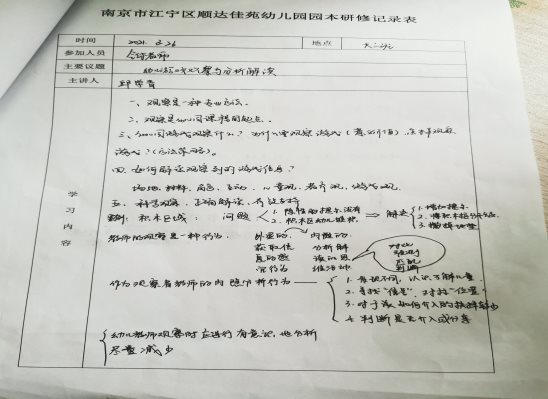 南京市江宁区顺达佳苑幼儿园园本研修记录表
时间 2021.3.26 地点 大二班
参加人员 全体老师
主要议题 幼儿游戏观察与分析解读
主讲人
学习内容
一、观察是一种专业态度。
二、观察是幼儿园课程的起点。
三、幼儿园游戏观察什么？为什么要观察游戏（意义价值）怎样观察
游戏？（方法策略）。
四、如何解读观察到的游戏信息？
场地、材料、角色、互动、儿童观、教育观、游戏观
五、科学观察、正确解读、有效支持
案例：积木区域：问题
1.
2. 积木区幼儿
解决
1. 增加提示
2. 将积木
3.
教师的观察是一种行为。外显的 内隐的
获取信 分析解
真的感 读的思
官行为 维活动
对比
推测
匹配
判断
作为观察者教师的内隐分析行为
1. 重视不同，认识了解儿童
2. 寻找“信息”，对接“位置”
3. 对于该如何介入的
4. 判断是否介入或分享
幼儿教师观察时应进行有意识地分析
尽量减少